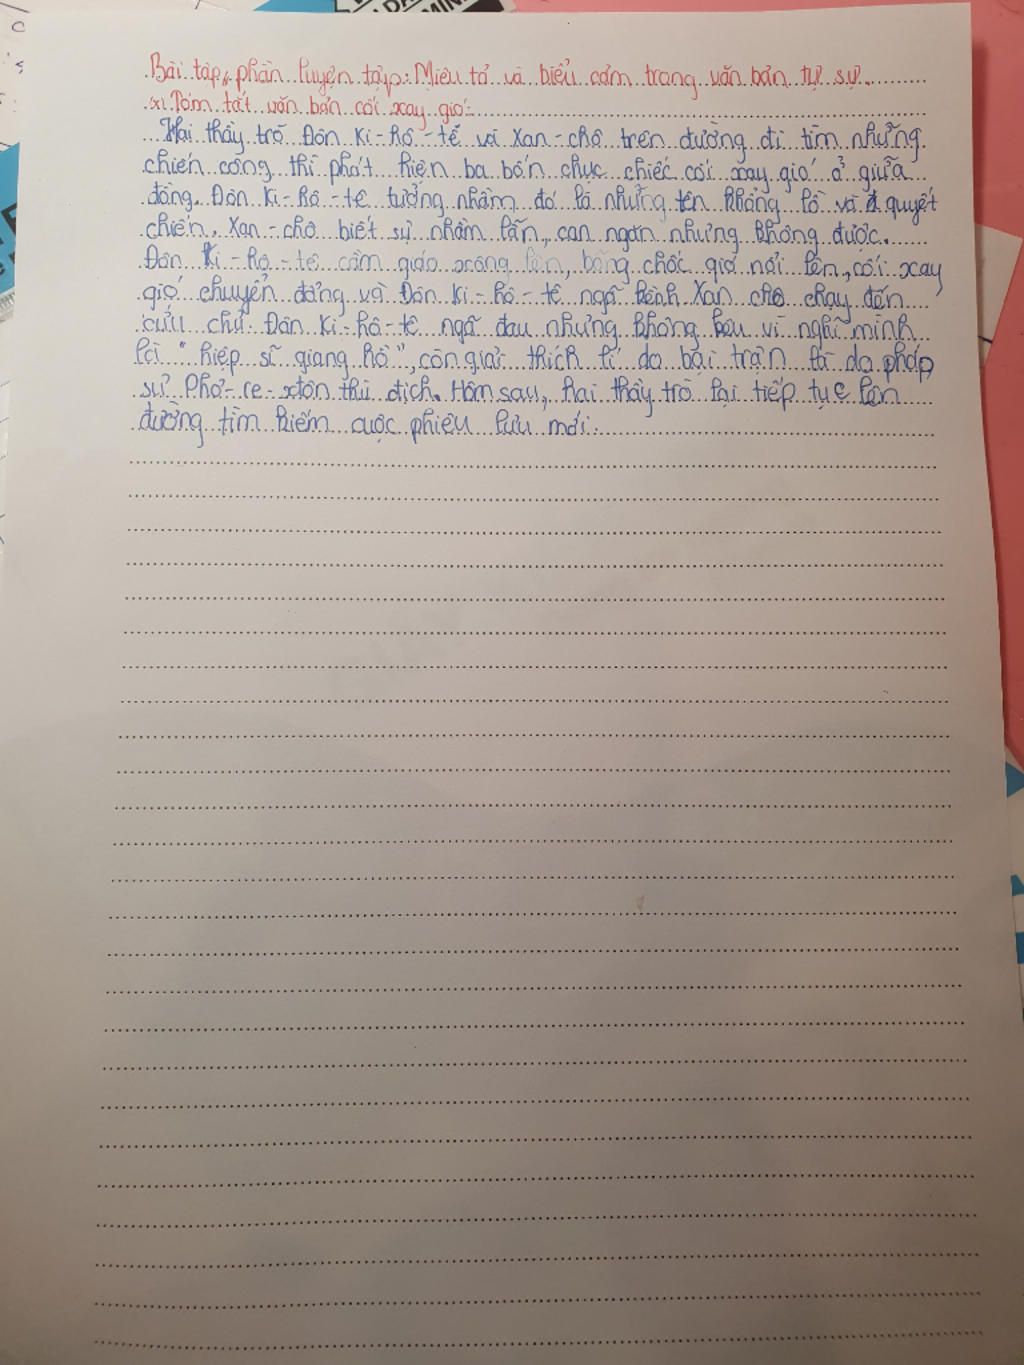 Bài tập phần luyện tập: Miêu tả và biểu cảm trong văn bản tự sự.
Tóm tắt văn bản cối xay gió:
Hai thầy trò Đôn Ki-hô-tê và Xan-chô trên đường đi tìm những
chiến công thì phát hiện ba bốn chục chiếc cối xay gió ở giữa
đồng. Đôn Ki-hô-tê tưởng nhầm đó là những tên khổng lồ và quyết
chiến. Xan-chô biết sự nhầm lẫn, can ngăn nhưng không được.
Đôn Ki-hô-tê cầm giáo xông lên, bỗng chốc gió nổi lên, cối xay
gió chuyển động và Đôn Ki-hô-tê ngã kềnh Xan chô chạy đến
cứu chủ. Đôn Ki-hô-tê ngã đau nhưng không kêu vì nghĩ mình
là "hiệp sĩ giang hồ", còn giải thích lí do bại trận là do pháp
sư Phơ-re-xtôn thù địch. Hôm sau, hai thầy trò lại tiếp tục lên
đường tìm kiếm cuộc phiêu lưu mới.